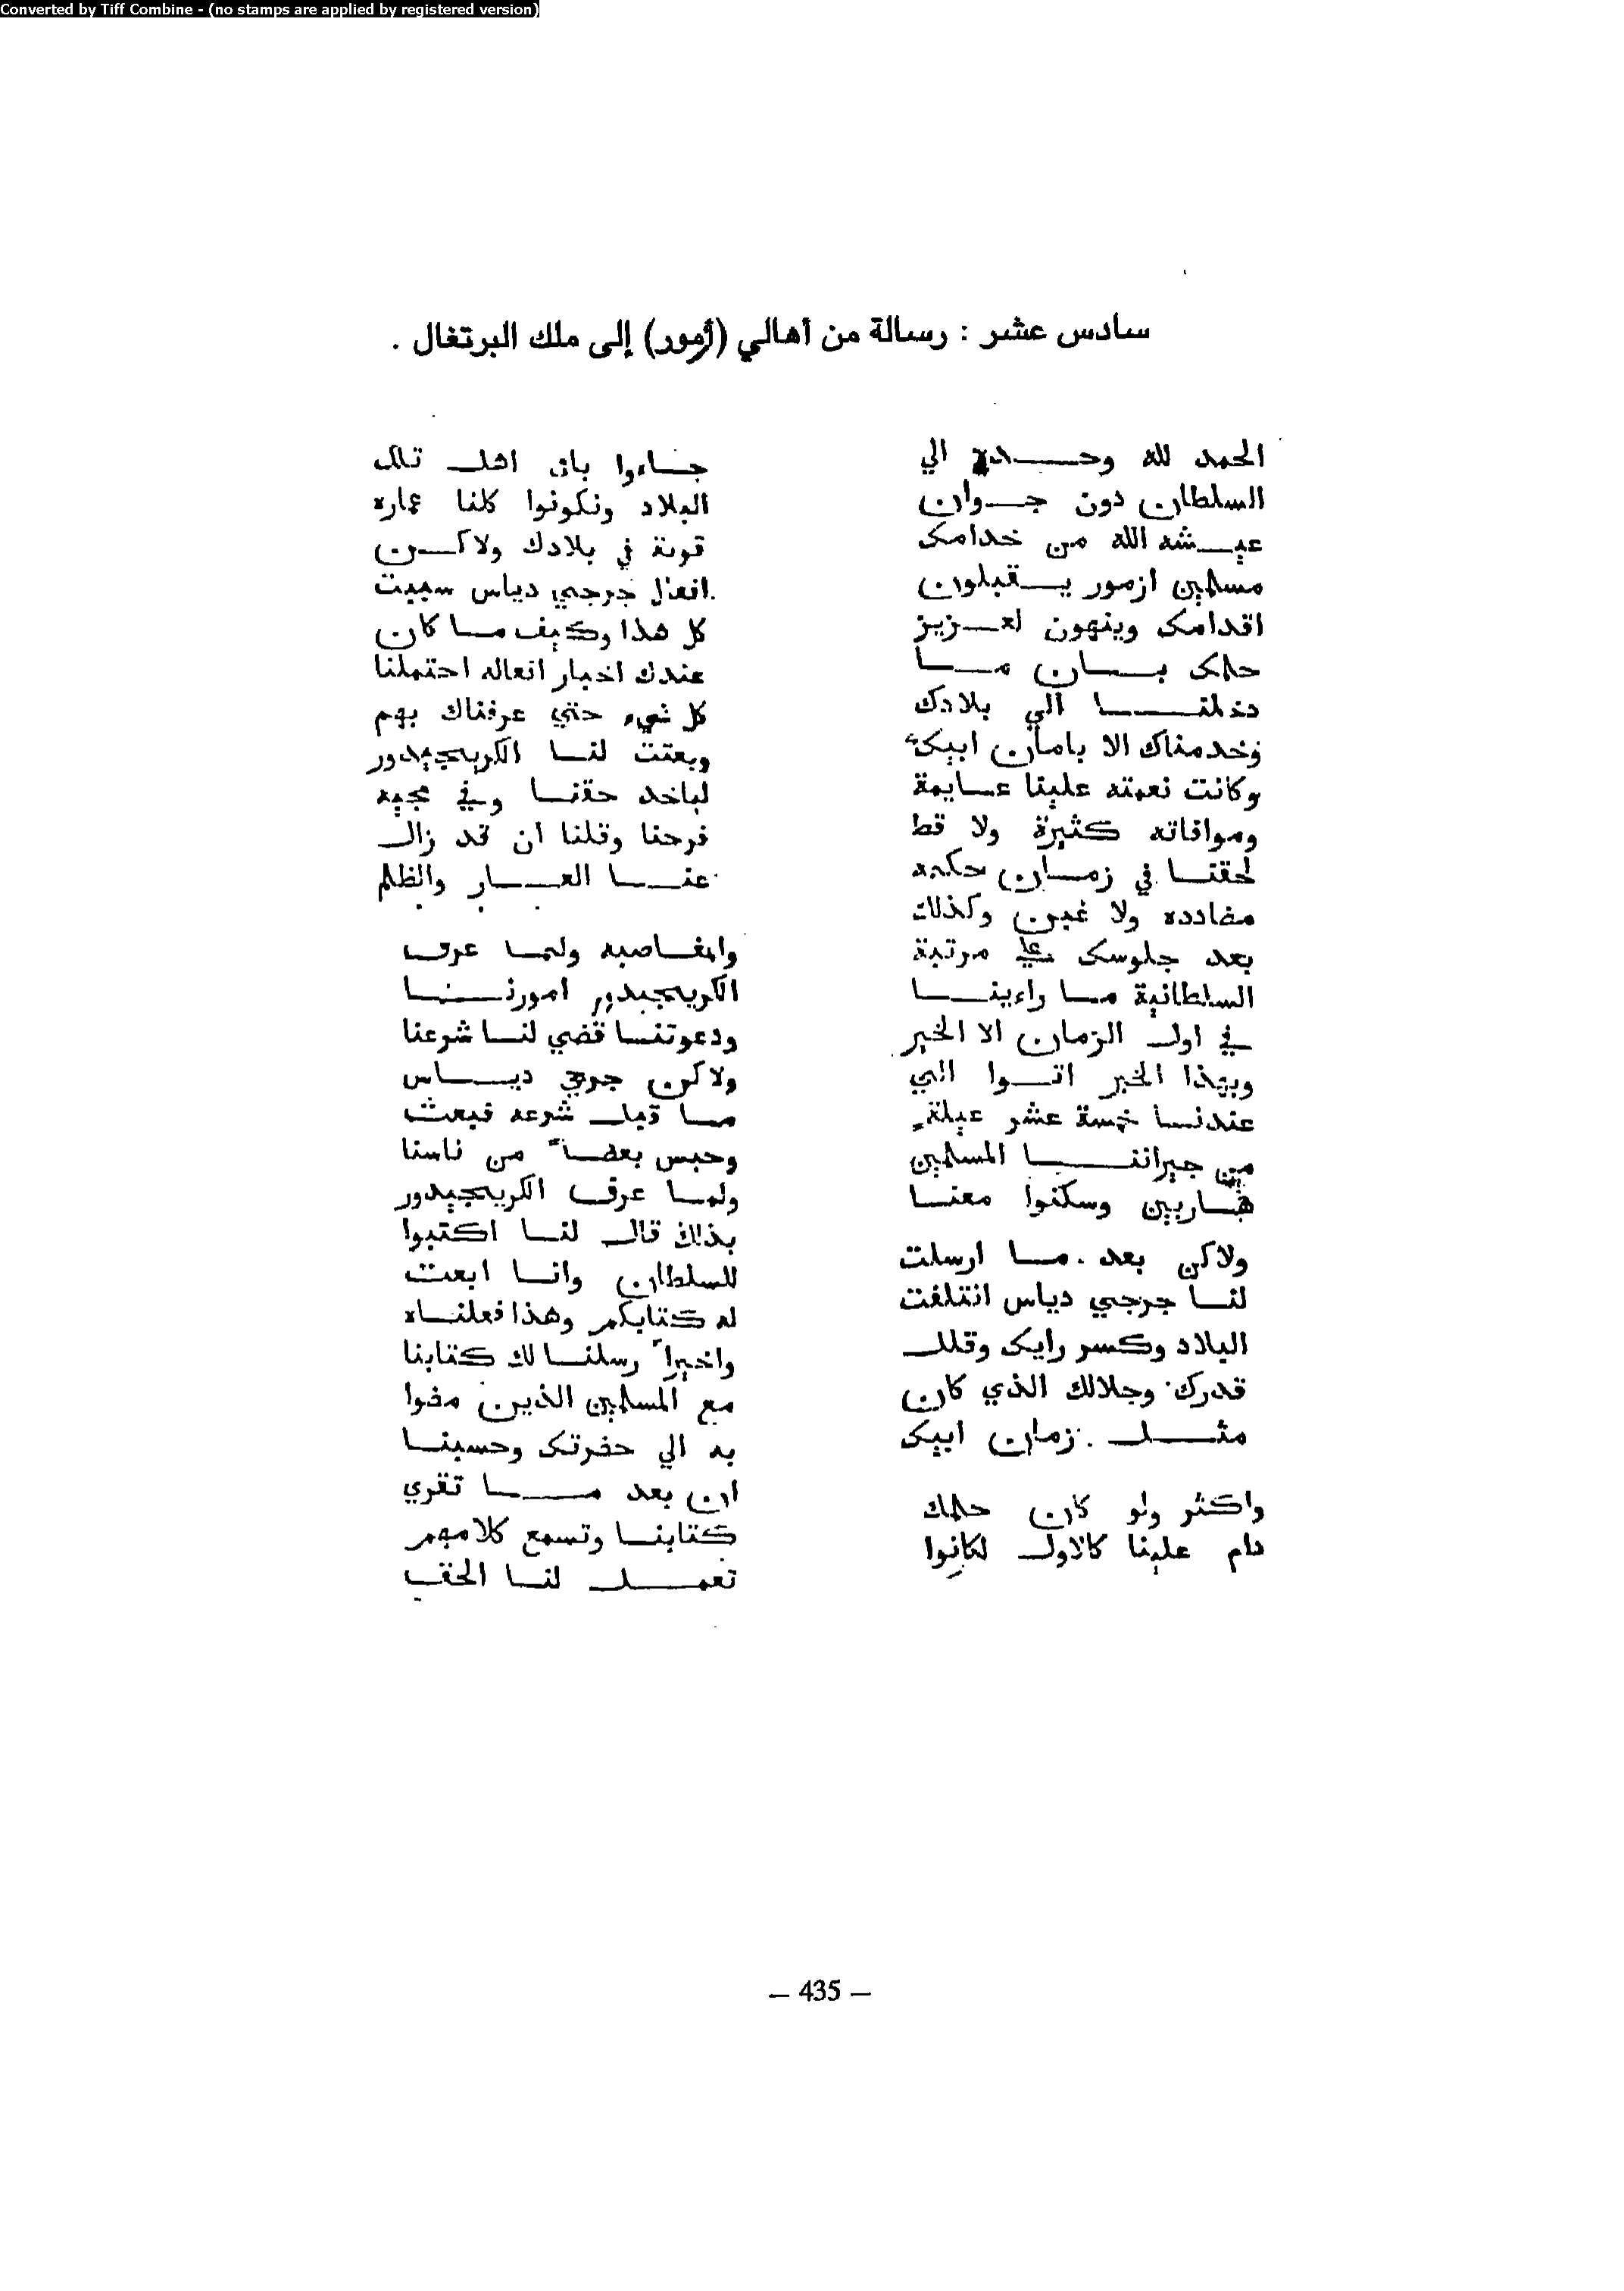 Converted by Tiff Combine - (no stamps are applied by registered version)
سادس عشر : رسالة من أهالي (أزمور) إلى ملك البرتغال .
الحمد لله وحده الي
السلطان دون جوان
عيشه الله من خدامك
مسلمين ازمور يقبلون
اقدامك وينهون لعزيز
حلمك بان ما
دخلنا الي بلادك
وخدمناك الا بامان ابيك
وكانت نعمته علينا عايمة
وموافاته كثيرة ولا قط
لحقنا في زمان حكمه
مضادده ولا غبن وكذلك
بعد جلوسك علي مرتبة
السلطانية ما راءينا
في اول الزمان الا الخير
وبهذا الخبر اتوا الي
عندنا خمسة عشر عيلة
من جيراننا المسلمين
هاربين وسكنوا معنا
ولاكن بعد ما ارسلت
لنا جرجي دياس انتلفت
البلاد وكسر رايك وقلل
قدرك وجلالك الذي كان
مثل زمان ابيك
واكثر ولو كان حلمك
دام علينا كالاول لكانوا
جاءوا باقي اهل تلك
البلاد ونكونوا كلنا عماره
قوية في بلادك ولاكن
افعال جرجي دياس سبيت
كل هذا وكيف ما كان
عندك اخبار افعاله احتملنا
كل شيء حتي عرفناك بهم
وبعتت لنا الكريجيدور
لياخد حقنا وفي مجيه
فرحنا وقلنا ان قد زال
عنا العار والظلم
والمغاصبه ولما عرف
الكريجيدور امورنا
ودعوتنا قضي لنا شرعنا
ولاكن جرجي دياس
ما قبل شرعه فبعث
وحبس بعضاً من ناسنا
ولما عرف الكريجيدور
بذلك قال لنا اكتبوا
للسلطان وانا ابعث
له كتابكم وهذا فعلناه
واخيراً رسلنا لك كتابنا
مع المسلمين الذين مضوا
به الي حضرتك وحسبنا
ان بعد ما تقري
كتابنا وتسمع كلامهم
تعمل لنا الحق
– 435 –